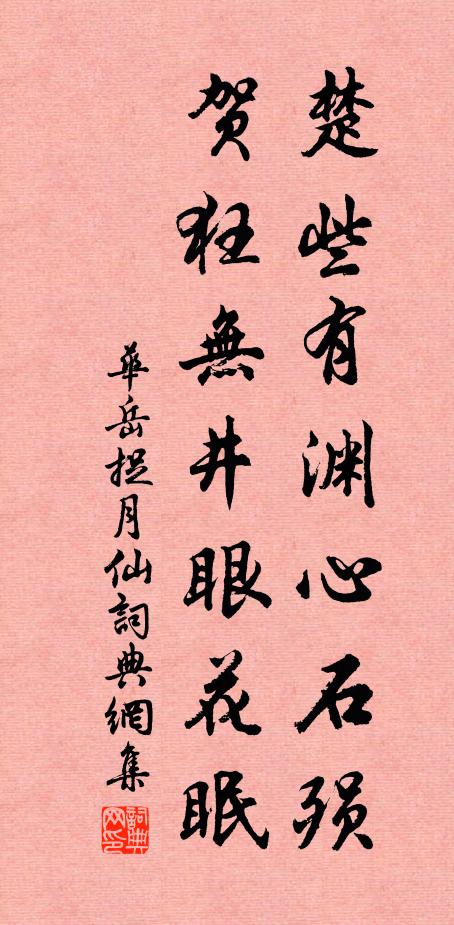 楚些有渊心石殒
贺狂無井眼花眠
華岳捉月仙詞典網集
詞典网印